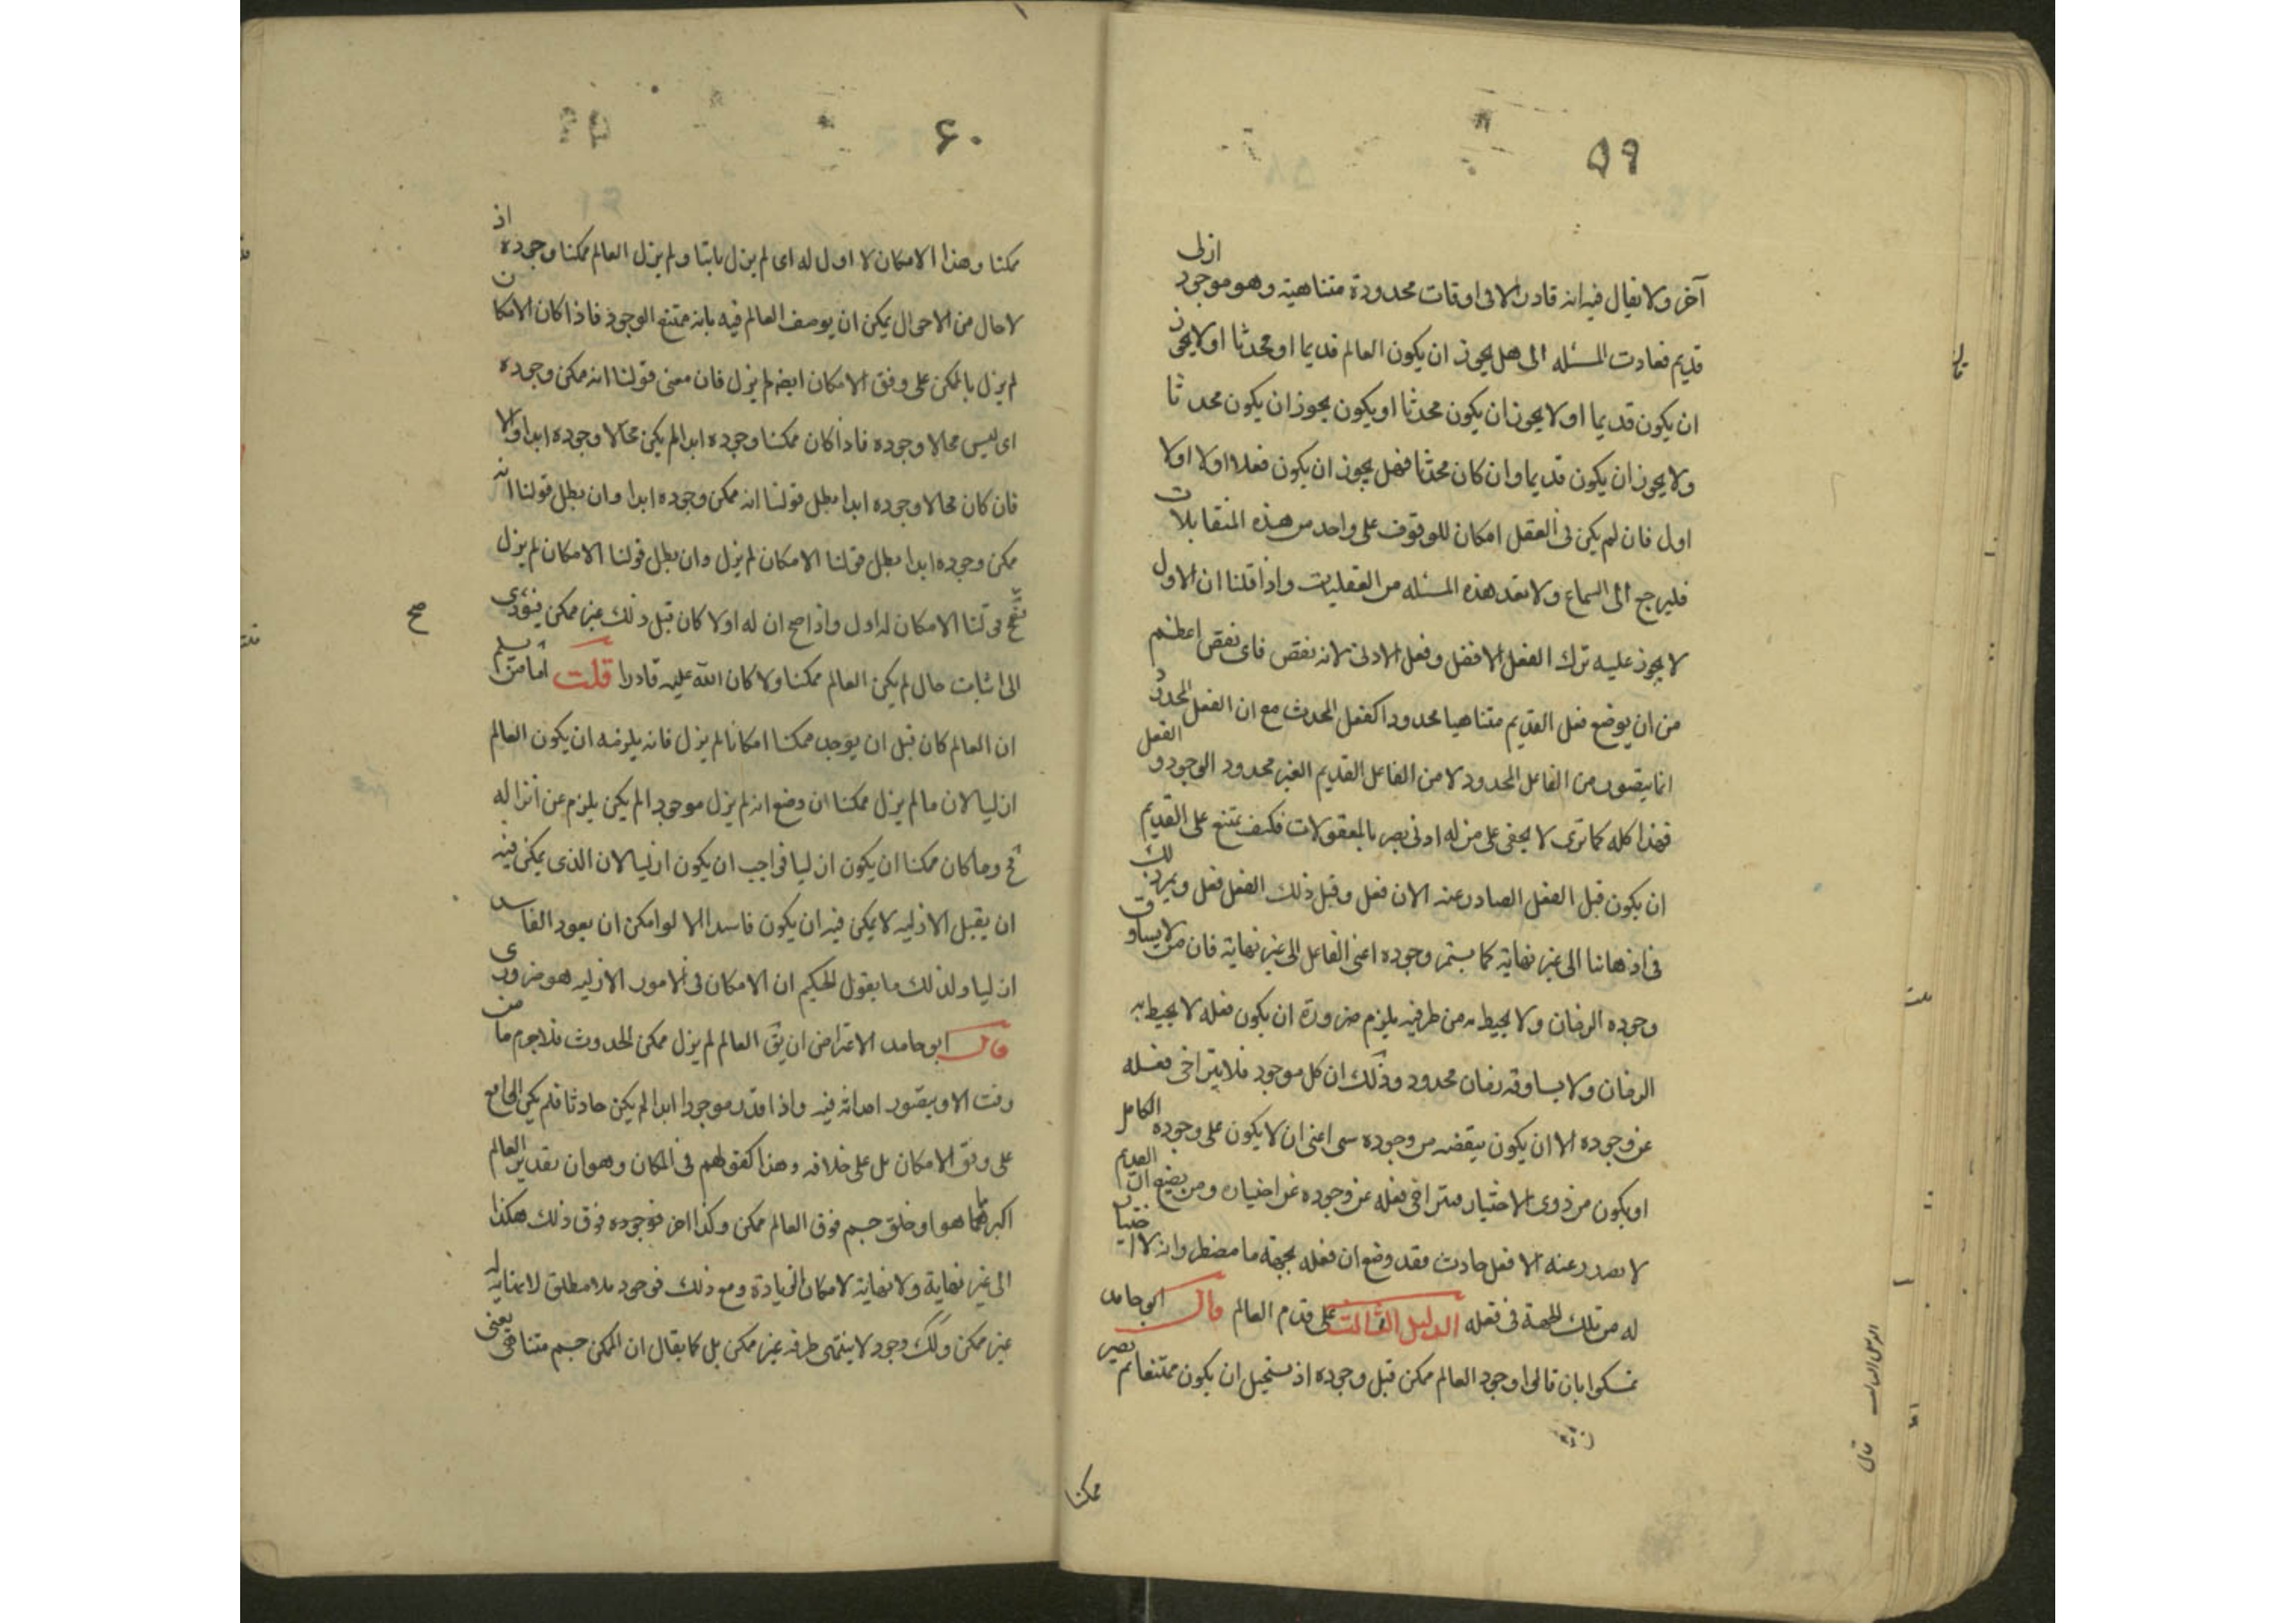 ٥٩
آخر ولا يقال فيه انه قادر الا فى اوقات محدودة متناهية وهو موجود ازلى
قديم فعادت المسئله الى هل يجوز ان يكون العالم قديما او محدثا او لا يجوز
ان يكون قديما او لا يجوز ان يكون محدثا او يكون يجوز ان يكون محدثا
ولا يجوز ان يكون قديما وان كان محدثا فهل يجوز ان يكون فعلا اولا او لا
اول فان لم يكن فى العقل امكان للوقوف على واحد من هذه المتقابلات
فليرجع الى السماع ولا تعد هذه المسئله من العقليات واذا قلنا ان الاول
لا يجوز عليه ترك الفعل الافضل وفعل الادنى لانه نقص فاى نقص اعظم
من ان يوضع فعل القديم متناهيا محدودا كفعل المحدث مع ان الفعل المحدود
انما يتصور من الفاعل المحدود لا من الفاعل القديم الغير محدود الوجود و الفعل
فهذا كله كما ترى لا يخفى على من له ادنى بصر بالمعقولات فكيف يمتنع على القديم
ان يكون قبل الفعل الصادر عنه الان فعل وقبل ذلك الفعل فعل ويمر ذلك
فى اذهاننا الى غير نهاية كما يستمر وجوده اعنى الفاعل الى غير نهاية فان من لا يساوق
وجوده الزمان ولا يحيط به من طرفيه يلزم ضرورة ان يكون فعله لا يحيط به
الزمان ولا يساوقه زمان محدود وذلك ان كل موجود فلا يتراخى فعله
عن وجوده الا ان يكون ينقصه من وجوده سى اعنى ان لا يكون على وجوده الكامل
او يكون من ذوى الاختيار فيتراخى فعله عن وجوده عن اختياره ومن يضع ان القديم
لا يصدر عنه الا فعل حادث فقد وضع ان فعله بجهة ما مضطر وانه لا اختيار
له من تلك الجهة فى فعله الدليل الثالث على قدم العالم قال ابو حامد
تمسكوا بان قالوا وجود العالم ممكن قبل وجوده اذ يستحيل ان يكون ممتنعا ثم يصير
ممكنا
٦٠
ممكنا وهذا الامكان لا اول له اى لم يزل ثابتا ولم يزل العالم ممكنا وجوده اذ
لا حال من الاحوال يمكن ان يوصف العالم فيه بانه ممتنع الوجود فاذا كان الامكان
لم يزل بالممكن على وفق الامكان ايضا لم يزل فان معنى قولنا انه ممكن وجوده
اى ليس محالا وجوده فاذا كان ممكنا وجوده ابدا لم يكن محالا وجوده ابدا والا
فان كان محالا وجوده ابدا بطل قولنا انه ممكن وجوده ابدا وان بطل قولنا انه
ممكن وجوده ابدا بطل قولنا الامكان لم يزل وان بطل قولنا الامكان لم يزل
صح قولنا الامكان له اول واذا صح ان له اولا كان قبل ذلك غير ممكن فيؤدى
صح
الى اثبات حال لم يكن العالم ممكنا ولا كان الله عليه قادرا قلت اما من يسلم
ان العالم كان قبل ان يوجد ممكنا امكانا لم يزل فانه يلزمه ان يكون العالم
ازليا لان ما لم يزل ممكنا ان وضع انه لم يزل موجودا لم يكن يلزم عن انزاله
مح وما كان ممكنا ان يكون ازليا فواجب ان يكون ازليا لان الذى يمكن فيه
ان يقبل الازليه لا يمكن فيه ان يكون فاسدا الا لو امكن ان يعود الفاسد
ازليا ولذلك ما يقول الحكيم ان الامكان فى الامور الازليه هو ضرورى
قال ابو حامد الاعتراض ان يق العالم لم يزل ممكن الحدوث فلا جرم ما من
وقت الا ويتصور احداثه فيه واذا قدر موجودا ابدا لم يكن حادثا فلم يكن الواقع
على وفق الامكان بل على خلافه وهذا كقولهم فى المكان وهو ان تقدير العالم
اكبر مما هو او خلق جسم فوق العالم ممكن وكذا اخر فوجوده فوق ذلك هكذا
الى غير نهاية ولا نهاية لامكان الزيادة ومع ذلك فوجود ملا مطلق لا نهاية له
غير ممكن وكك وجود لا ينتهى طرفه غير ممكن بل كما يقال ان الممكن جسم متناهى يعنى